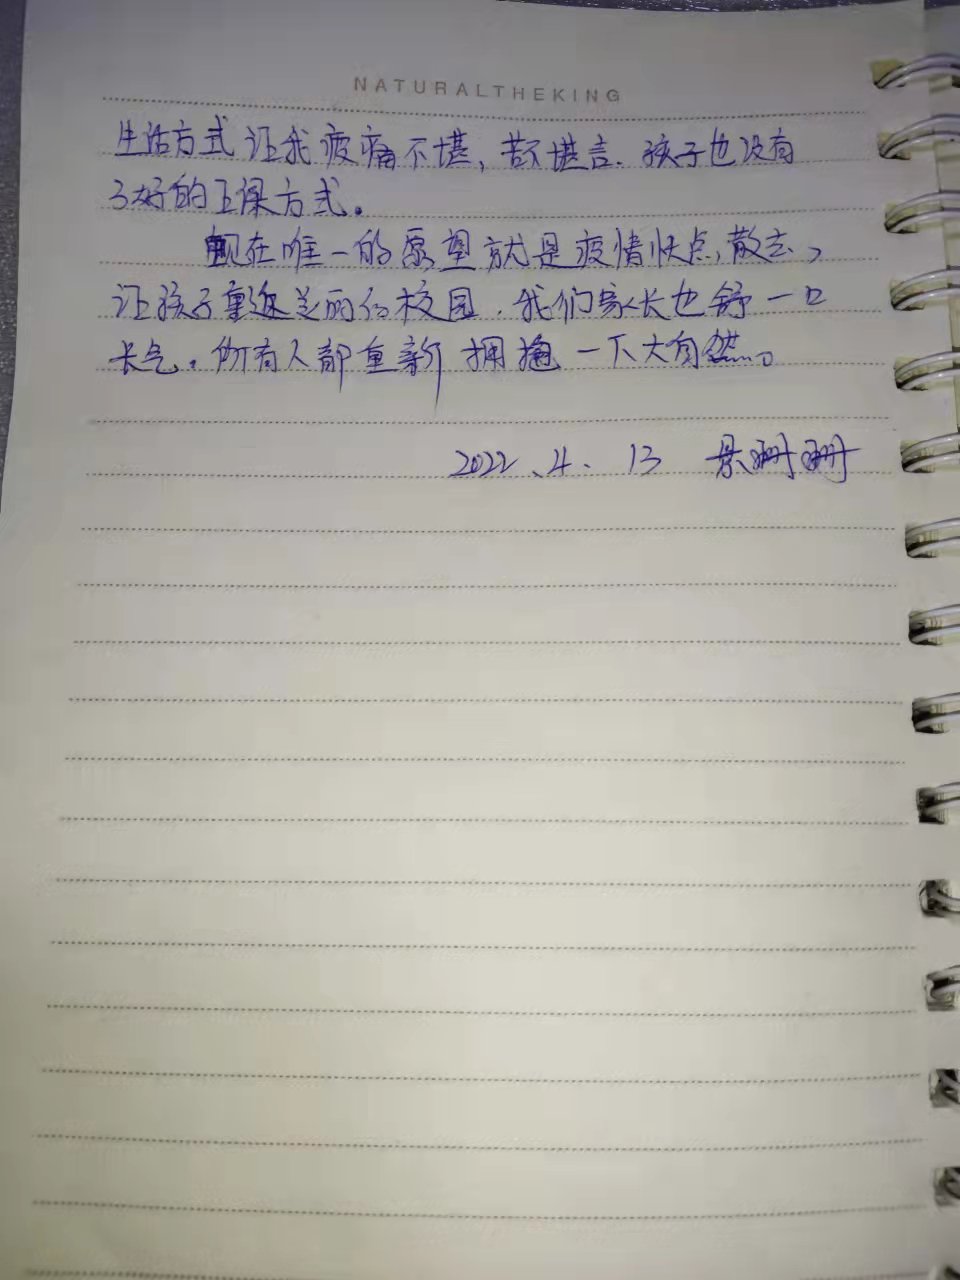 NATURALTHEKING
生活方式让我疲痛不堪，苦不堪言．孩子也没有
了好的上课方式。
现在唯一的愿望就是疫情快点散去，
让孩子重返美丽的校园．我们家长也舒一口
长气。所有人都重新拥抱一下大自然。
2022、4、13 景珊珊